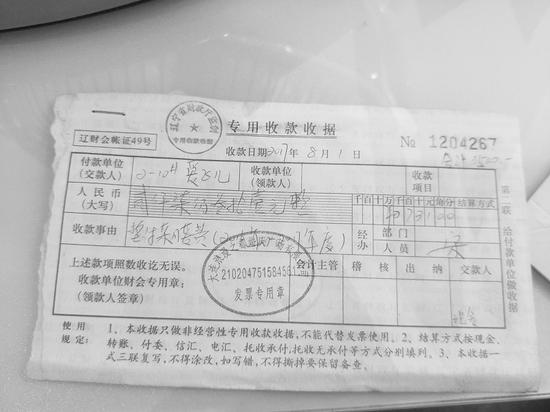 辽宁省财政厅监制
专用收款收据
专用收款收据
辽财会帐证49号
收款日期2017年8月1日
№ 1204267
付款单位
(交款人)
2-10-1
收款单位
(领款人)
收款
项目
人民币
(大写)
壹仟柒佰叁拾壹元整
千百十万千百十元角分
结算方式
¥173100
收款事由
年度)
经 部门
办 人员
上述款项照数收讫无误。
收款单位财会专用章:
(领款人签章)
会计主管
稽 核
出 纳
交款人
现金
210204751584561
发票专用章
第二联 给付款单位做收据
使用
规定:
1、本收据只做非经营性专用收款收据,不能代替发票使用。2、结算方式按现金、
转账、付委、信汇、电汇、托收承付、托收无承付等方式分别填列。3、本收据一
式三联复写,不得涂改,如写错,不得撕掉要保留备查。